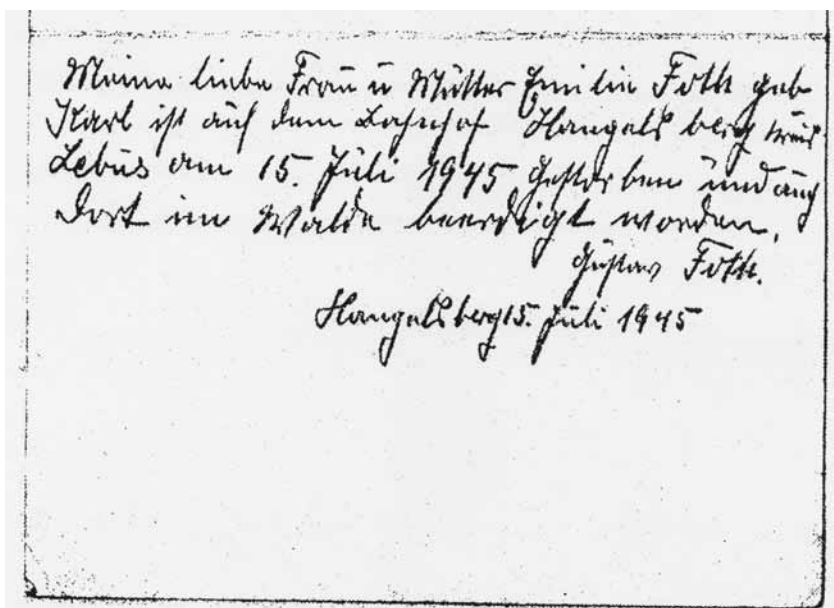 Meine liebe Frau u Mutter Emilie Foth geb
Karl ist auf dem Bahnhof Hangels berg Kreis
Lebus am 15. Juli 1945 gestorben und auch
dort im Walde beerdigt worden.
Gustav Foth.
Hangelsberg 15. Juli 1945